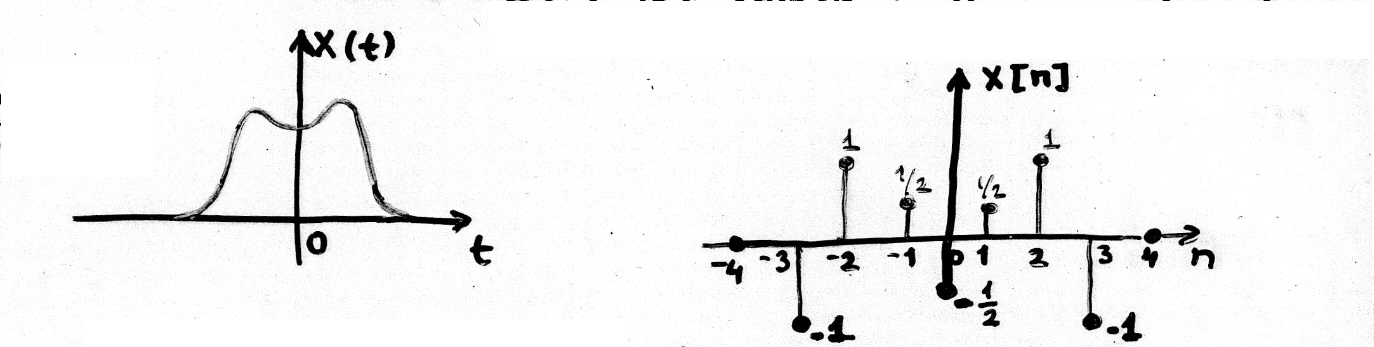 X(t)
0
t
X[n]
1
1/2
1/2
1
-4 -3 -2 -1 0 1 2 3 4 n
-1/2
-1
-1